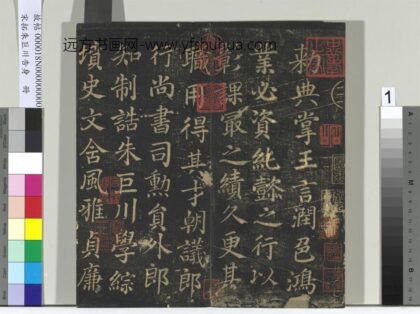 敕典掌王言潤色鴻
業必資純懿之行以
彰課最之績久更其
職用得其才朝議郎
行尚書司勲員外郎
知制誥朱巨川學綜
墳史文含風雅貞廉
远方书画网 www.yfshuhua.com
故帖 000018N000000000
宋拓朱巨川告身 册
1